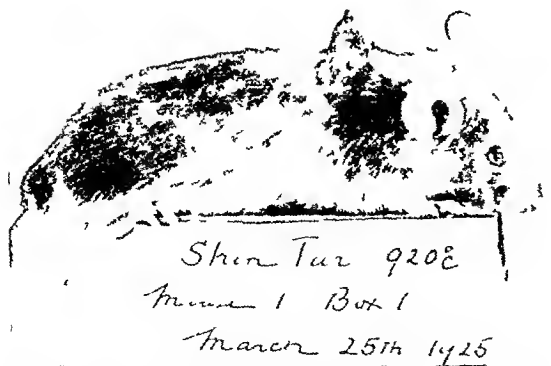 Skin Tur 920c
Mouse 1 Box 1
March 25th 1925